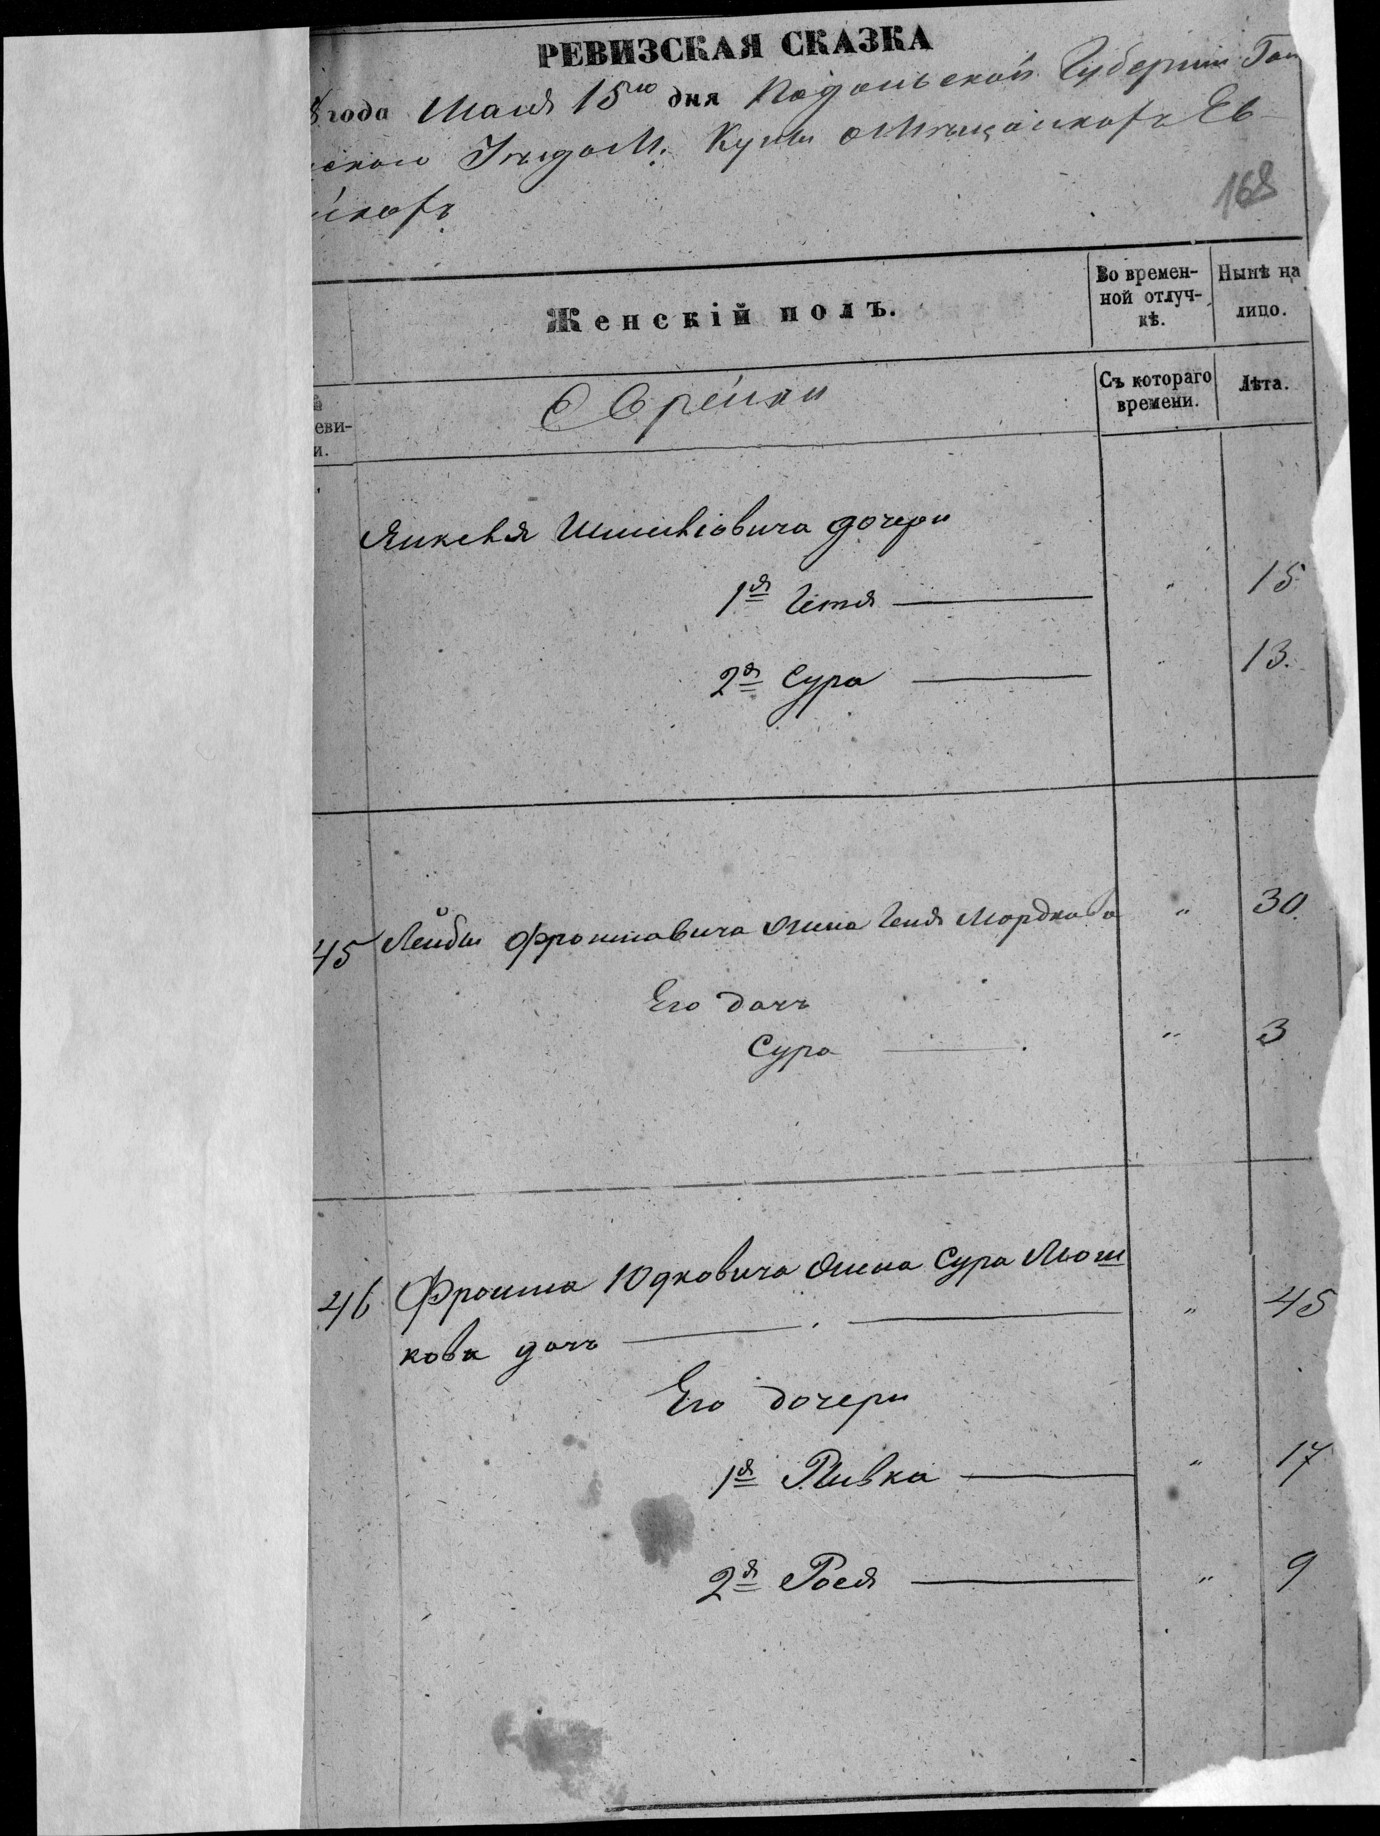 РЕВИЗСКАЯ СКАЗКА
8 года Маія 15го дня Подольской Губерніи Гай
скаго Уѣзда М. Куны о Мѣщанахъ Ев
реяхъ
168
Женскій полъ.
Во времен-
ной отлуч-
кѣ.
Нынѣ на
лицо.
еви-
и.
Еврейки
Съ котораго
времени.
Лѣта.
Янкеля дочери
1я 15
2я Сура 13.
45 Лейбы Фроимовича жена Геня Мордкова „ 30.
Его дочь
Сура „ 3
46 Фроима Юдковича жена Сура Мош
кова дочь „ 45
Его дочери
1я Ривка „ 17
2я Рося „ 9